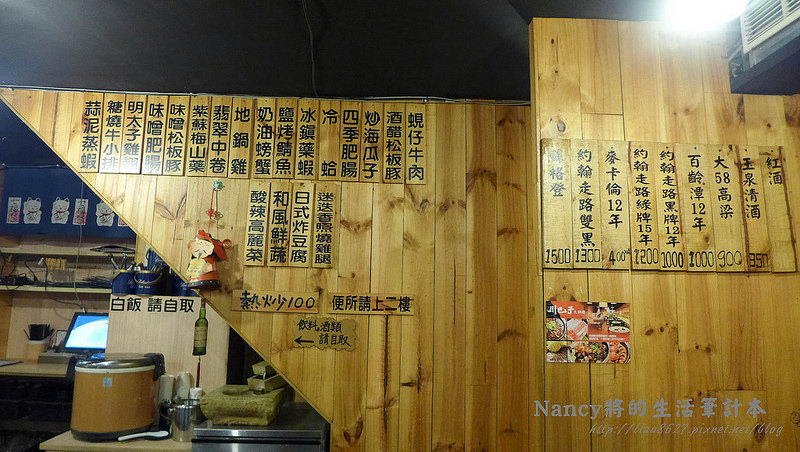 蜆仔牛肉
酒醋松板豚
炒海瓜子
四季肥腸
冷蛤
冰鎮藥蝦
鹽烤鯖魚
奶油螃蟹
地鍋雞
翡翠中卷
紫蘇梅山藥
味噌松板豚
味噌肥腸
明太子雞翅
糖燒牛小排
蒜泥蒸蝦
迷迭香照燒雞腿
日式炸豆腐
和風鮮蔬
酸辣高麗菜
熱炒100
便所請上二樓
飲料酒類
← 請自取
白飯 請自取
紅酒
玉泉清酒 350
大58高梁 900
百齡潭12年 1000
約翰走路黑牌12年 1000
約翰走路綠牌15年 1200
麥卡倫12年
約翰走路雙黑 1300
蘇格登 1500
Nancy將的生活筆計本
http://liau8627.pixnet.net/blog